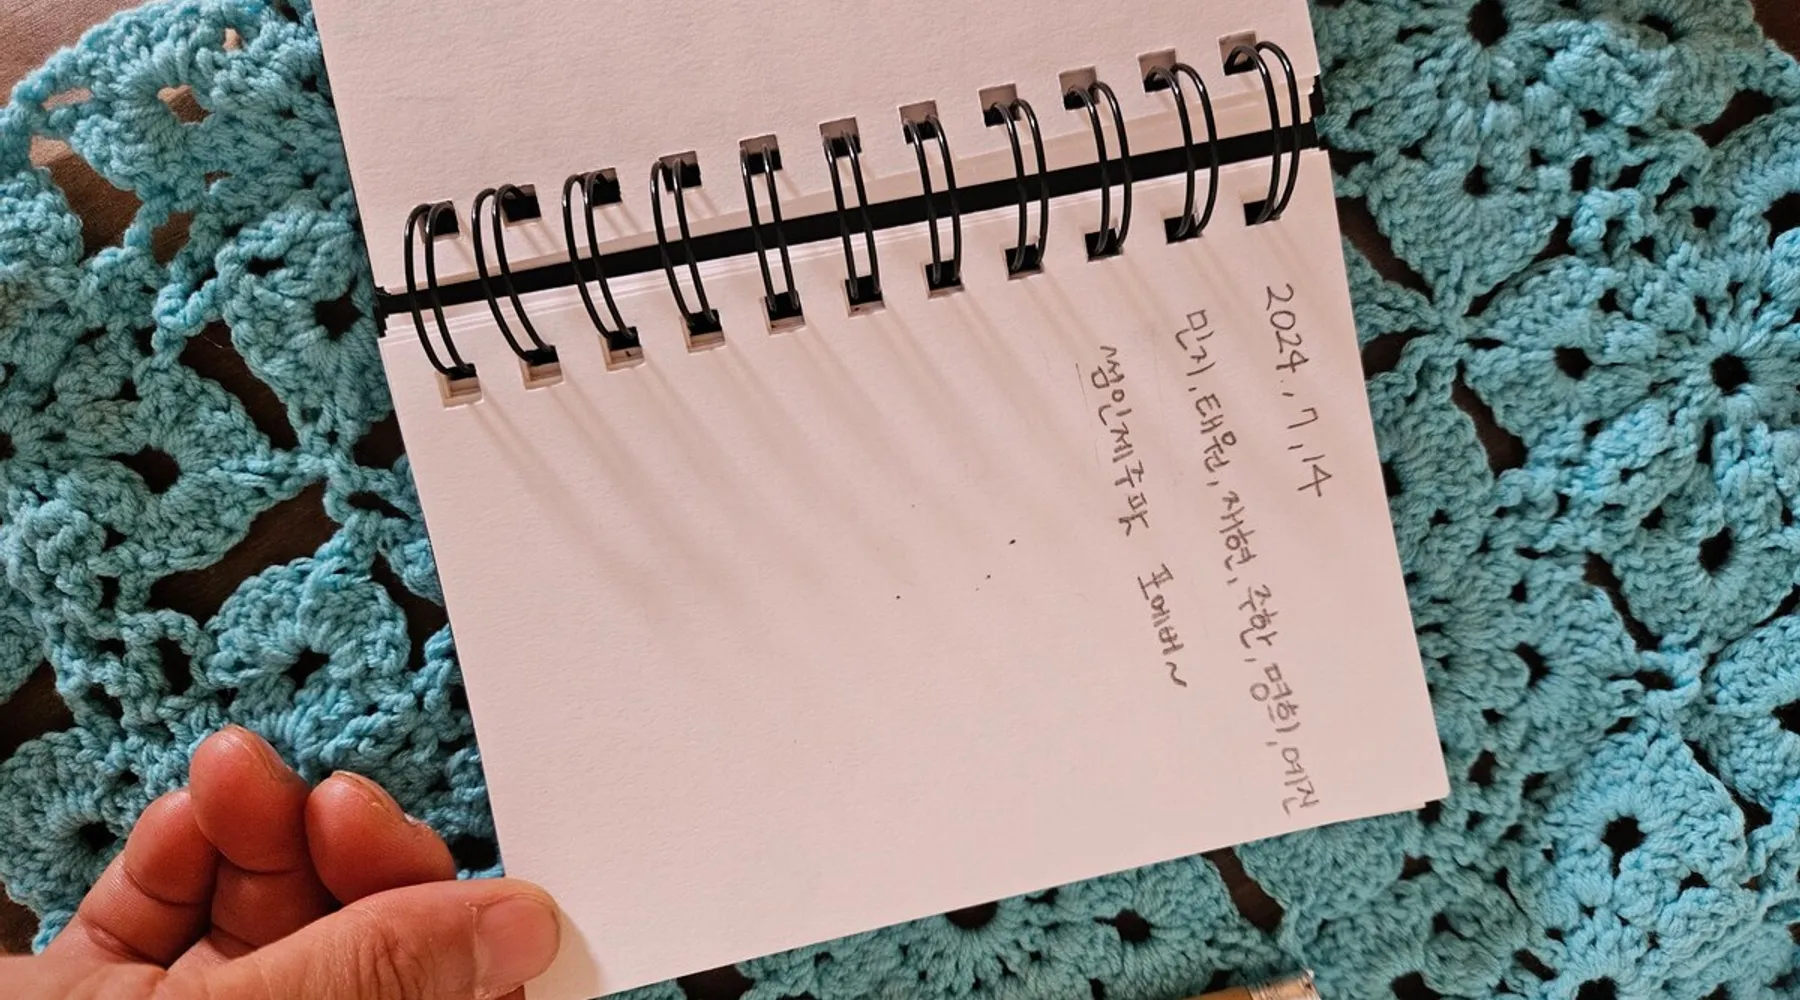 2024. 7. 14
민지, 태원, 재현, 주한, 명희, 여진
썸인제주팍 포에버~